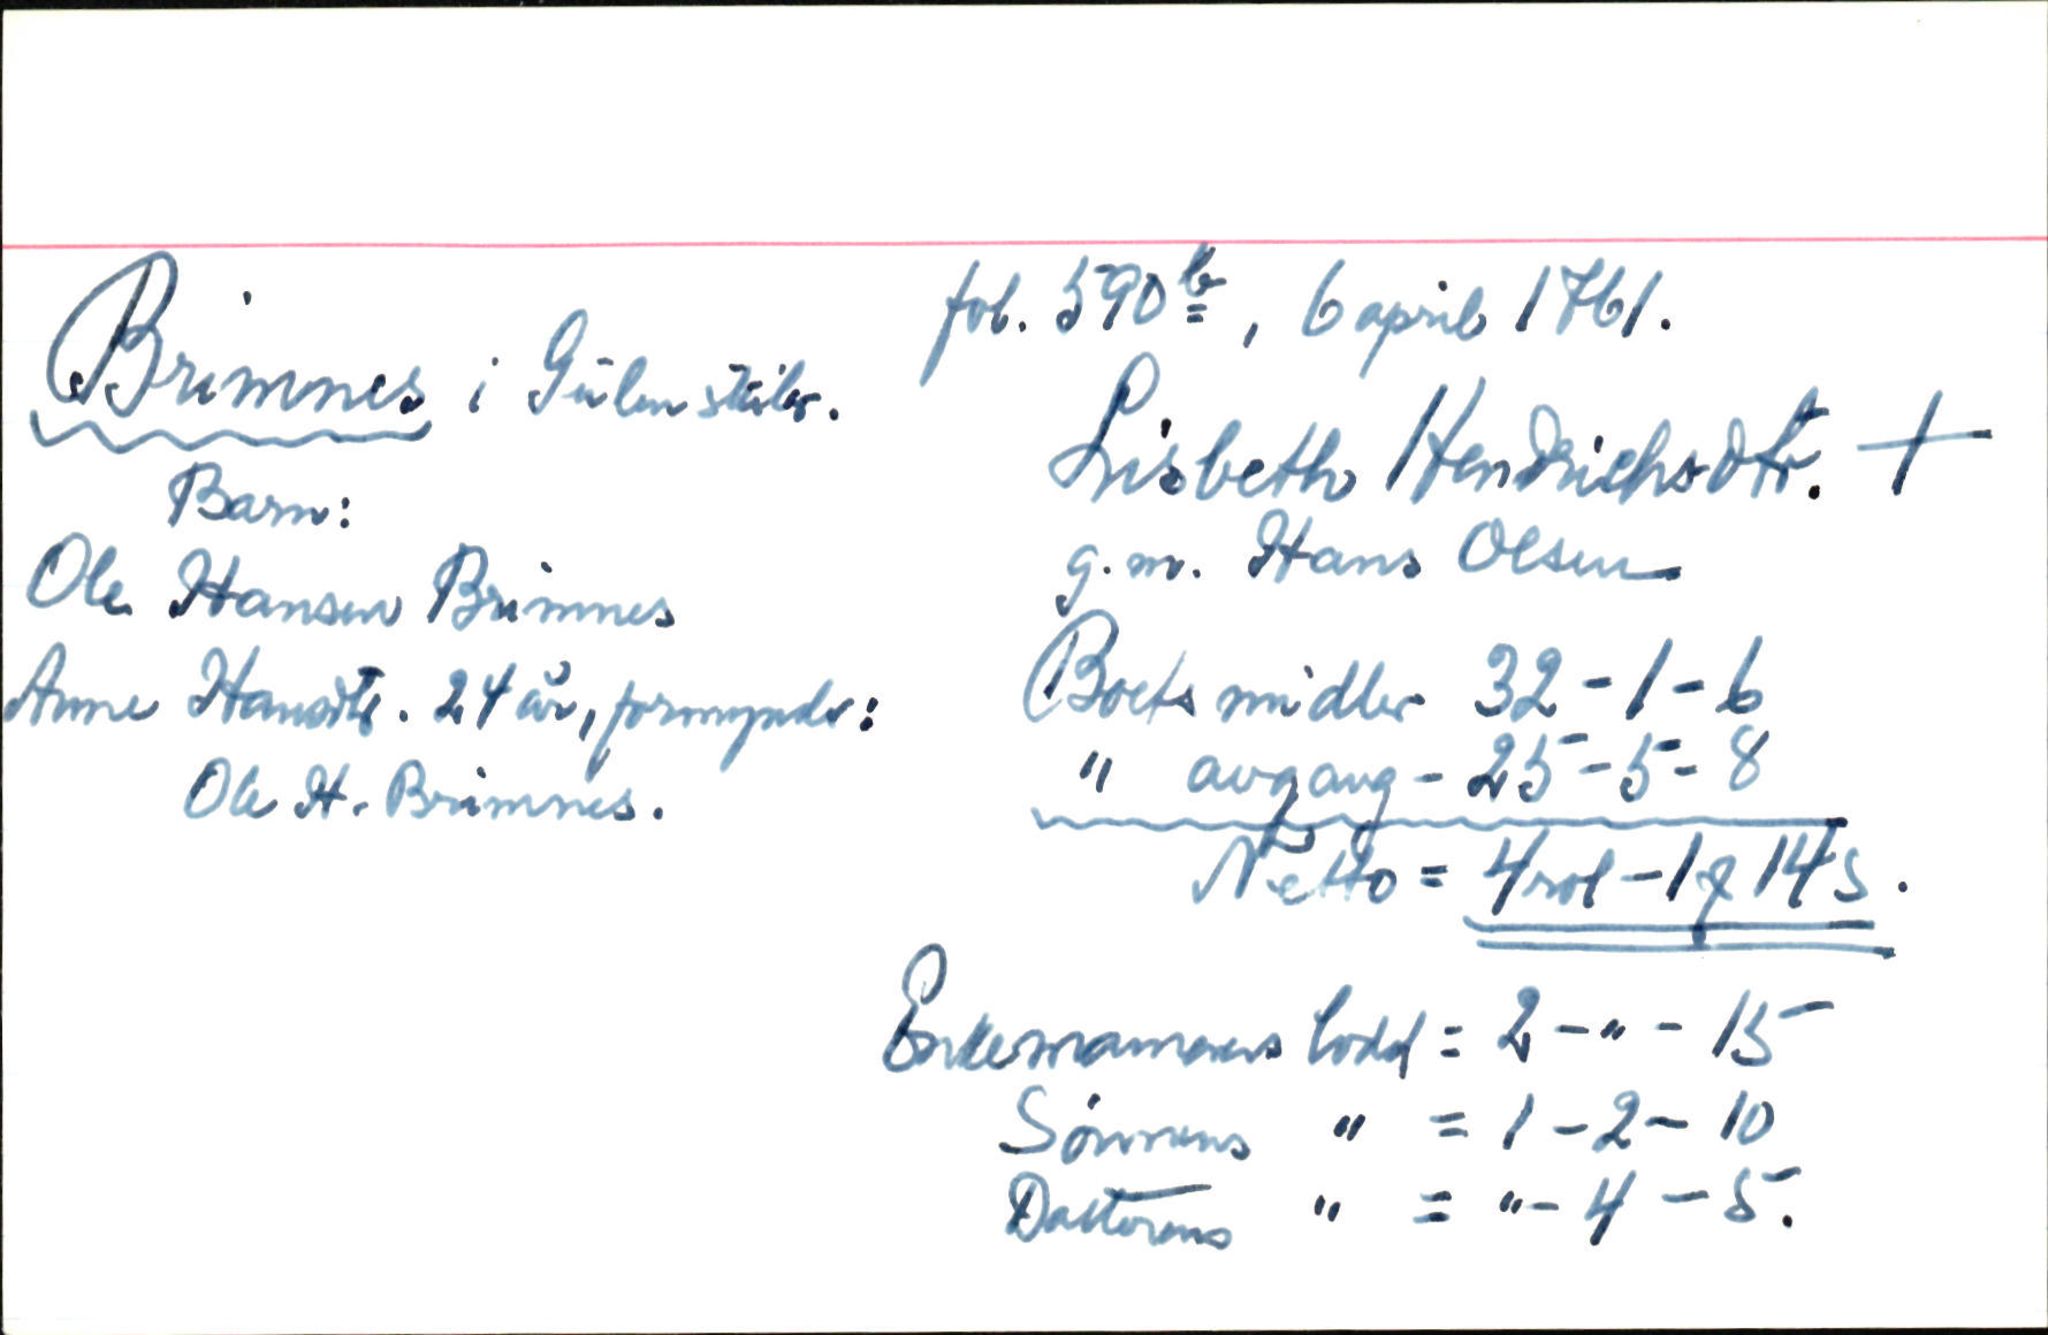 fol. 590b, 6 april 1761.
Brimnes i Gulen skibr.
Lisbeth Hendrichsdtr. +
g.m. Hans Olsen
Barn:
Ole Hansen Brimnes
Anne Hansdtr. 24 år, formynder:
Ole H. Brimnes.
Boets midler 32 - 1 - 6
" avgang - 25 - 5 - 8
Netto = 4 rdl - 1 14 s.
Enkemannens lodd = 2 - " - 15
Sønnens " = 1 - 2 - 10
Datterens " = " - 4 - 5.